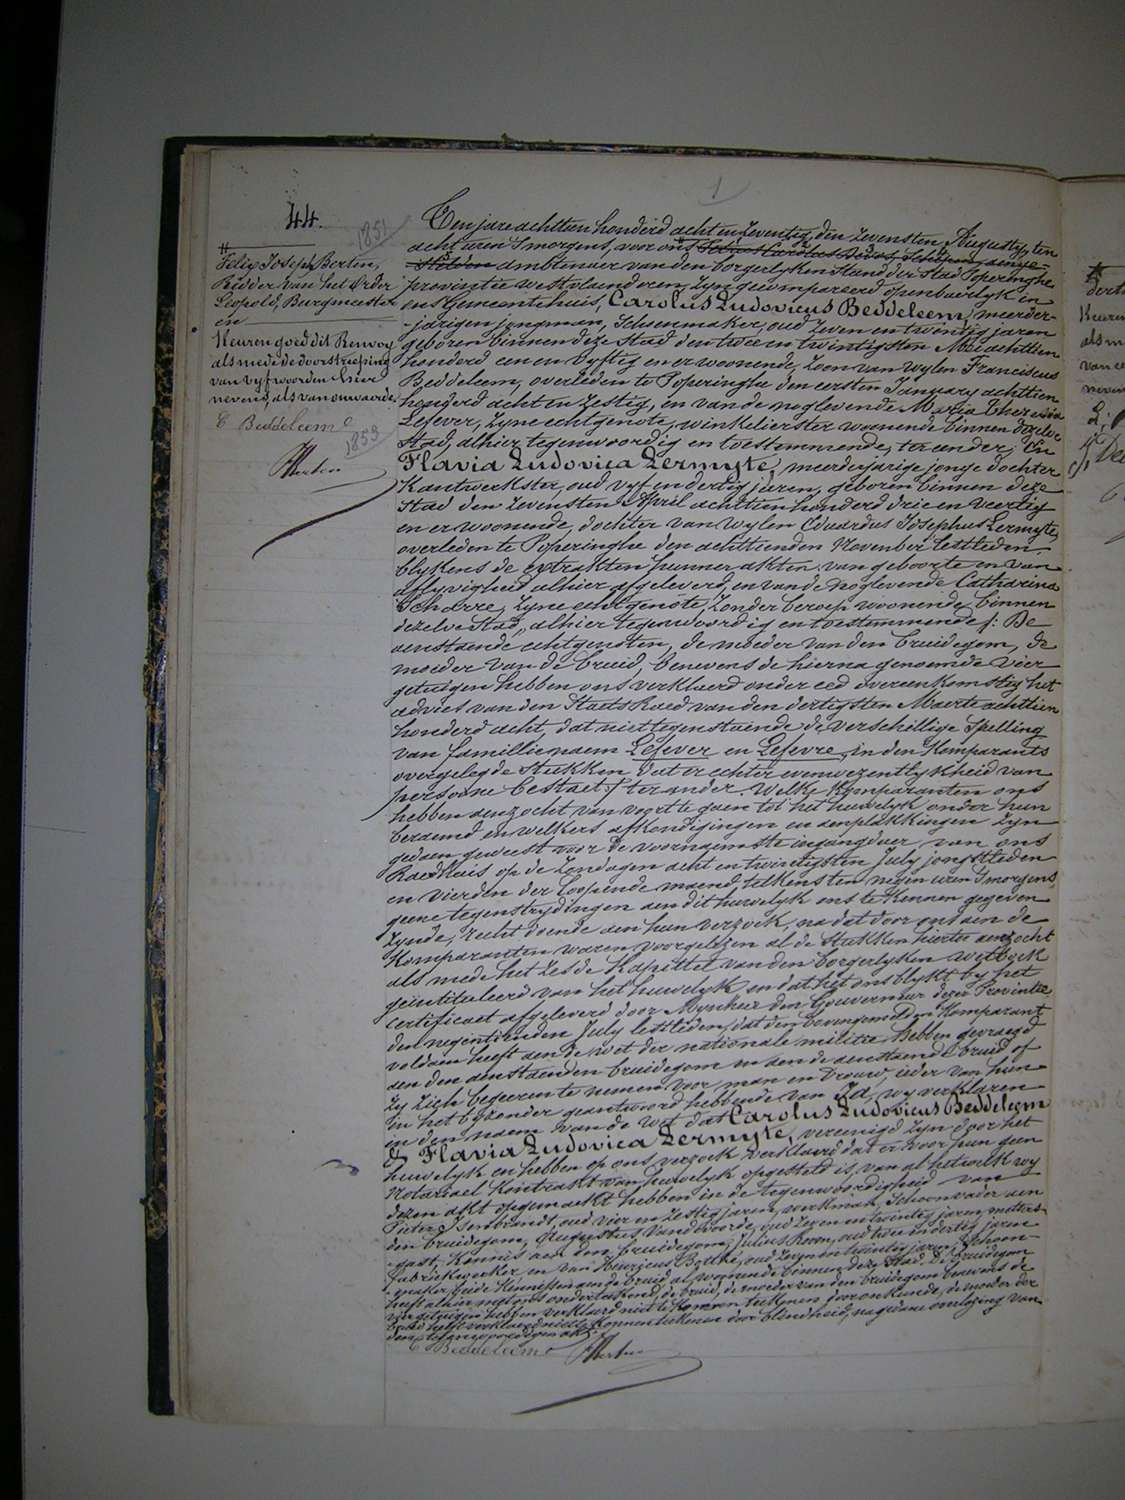 1
44.
1851
#
Felix Joseph Berten,
Ridder van het Order
Leopold, Burgmeester
en
Keuren goed dit Renvoy
als mede de doorstreeping
van vyf woorden hier
nevens, als van onwaarde.
C Beddeleem
1853
Berten
Ten jare achttien honderd acht en zeventig, den zevensten Augusty, ten
acht uren 's morgens, voor ons
ambtenaer van den borgerlyken stand der Stad Poperinghe
provintie westvlaanderen, zyn gecompareerd openbaerlyk in
ons Gemeentehuis, Carolus Ludovicus Beddeleem, meerder-
jarigen jongman, Schoenmaker, oud zeven en twintig jaren
geboren binnen deze Stad den twee en twintigsten Mei achttien
honderd een en vyftig en er woonende, zoon van wylen Franciscus
Beddeleem, overleden te Poperinghe den eersten January achttien
honderd acht en zestig, en van de noglevende Maria Theresia
Lefever, zyne echtgenote, winkelierster woonende binnen dezelve
Stad, alhier tegenwoordig en toestemmende, ter eender, En
Flavia Ludovica Lermyte, meerderjarige jonge dochter
Kantwerkster, oud vyf en dertig jaren, geboren binnen deze
Stad den zevensten April achttien honderd drie en veertig
en er woonende, dochter van wylen Eduardus Josephus Lermyte,
overleden te Poperinghe den achttienden November lestleden
blykens de extrakten hunner akten van geboorte en van
aflyvigheid alhier afgeleverd, en van de noglevende Catharina
Scharre, zyne echtgenote, zonder beroep woonende binnen
dezelve Stad, alhier tegenwoordig en toestemmende /: De
aenstaende echtgenoten, de moeder van den bruidegom, de
moeder van de bruid, benevens de hierna genoemde vier
getuigen hebben ons verklaerd onder eed overeenkomstig het
advies van den Staets Raed van den dertigsten Maerte achttien
honderd acht, dat niettegenstaende de verschillige Spelling
van familienaem Lefever en Lefevre, in den Komparants
overgelegde Stukken dat er echter evenwezentlykheid van
persoone bestaet :/ ter ander. Welke Komparanten ons
hebben aenzocht van voort te gaen tot het huwelyk onder hun
beraemd en welkers afkondigingen en aenplakkingen zyn
gedaen geweest voor de voornaemste ingangdeur van ons
Raedhuis op de Zondagen acht en twintigsten July jongstleden
en vierden der loopende maend telkens ten negen uren 's morgens,
geene tegenstrydingen aen dit huwelyk ons te kennen gegeven
zynde, recht doende aen hun verzoek, na dat door ons aen de
Komparanten waren voorgelezen al de Stukken hiertoe aenzocht
als mede het zesde Kapittel van den borgerlyken wetboek
geintituleerd van het huwelyk en dat het ons blykt by het
certificaet afgeleverd door Mynheer den Gouverneur dezer Provintie
den negentienden July lestleden, dat den bovengemelden Komparant
voldaen heeft aen de wet der nationale militie, hebben gevraegd
aen den aenstaenden bruidegom en aen de aenstaende bruid of
zy zich begeerente nemen voor man en vrouw, ieder van hun
in het byzonder geantwoord hebbende van Ja, wy verklaren
in den naem van de wet dat Carolus Ludovicus Beddeleem
& Flavia Ludovica Lermyte, vereenigd zyn door het
huwelyk en hebben op ons verzoek verklaerd dat er voor hun geen
Notariael Kontrakt van huwelyk opgesteld is, van al hetwelk wy
dezen akt opgemaekt hebben in de tegenwoordigheid van
Pieter Isenbrandt, oud vier en zestig jaren, werkman, Schoonvader aen
den bruidegom, Augustus Vandevoorde, oud zeven en twintig jaren, metsers-
gast, Kennis aen den bruidegom, Julius Room, oud twee en dertig jaren
fabriekwerker en van Henricus Botthé, oud zeven en twintig jaren, Schoen-
maker, beide Kennissen aen de bruid al woonende binnen deze Stad. De bruidegom
heeft alleen met ons onderteekend, de bruid, de moeder van den bruidegom benevens de
vier getuigen hebben verklaerd niet te konnen teekenen door onkunde, de moeder der
bruid heeft verklaerd niet te konnen teekenen door blindheid, na gedane voorlezing van
C Beddeleem Berten